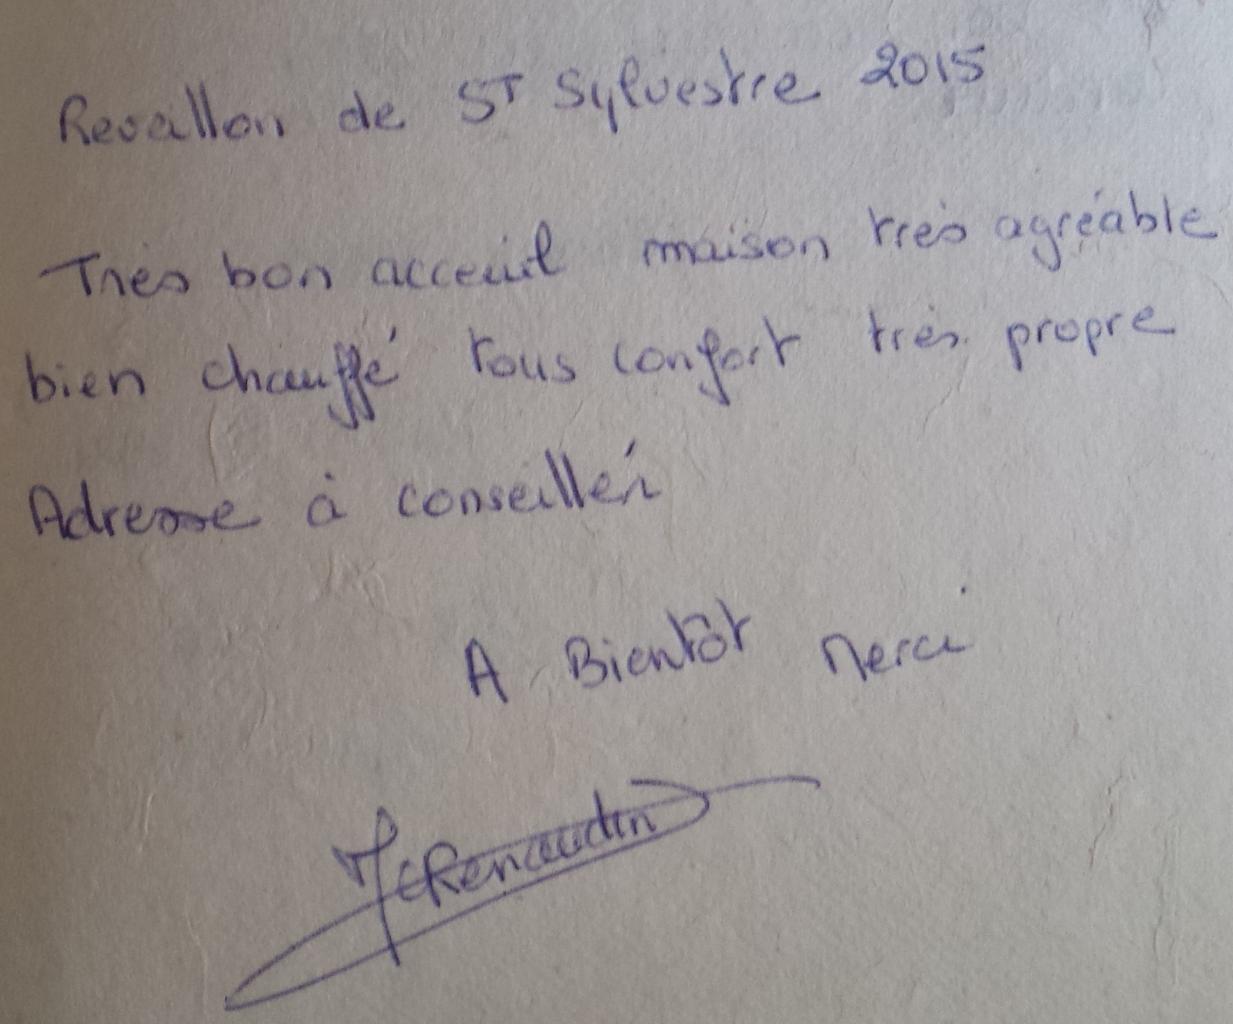 Revaillon de ST Sylvestre 2015
Très bon acceuil maison très agréable
bien chauffé tous confort très propre
Adresse à conseillér
A Bientôt Merci
Renaudin